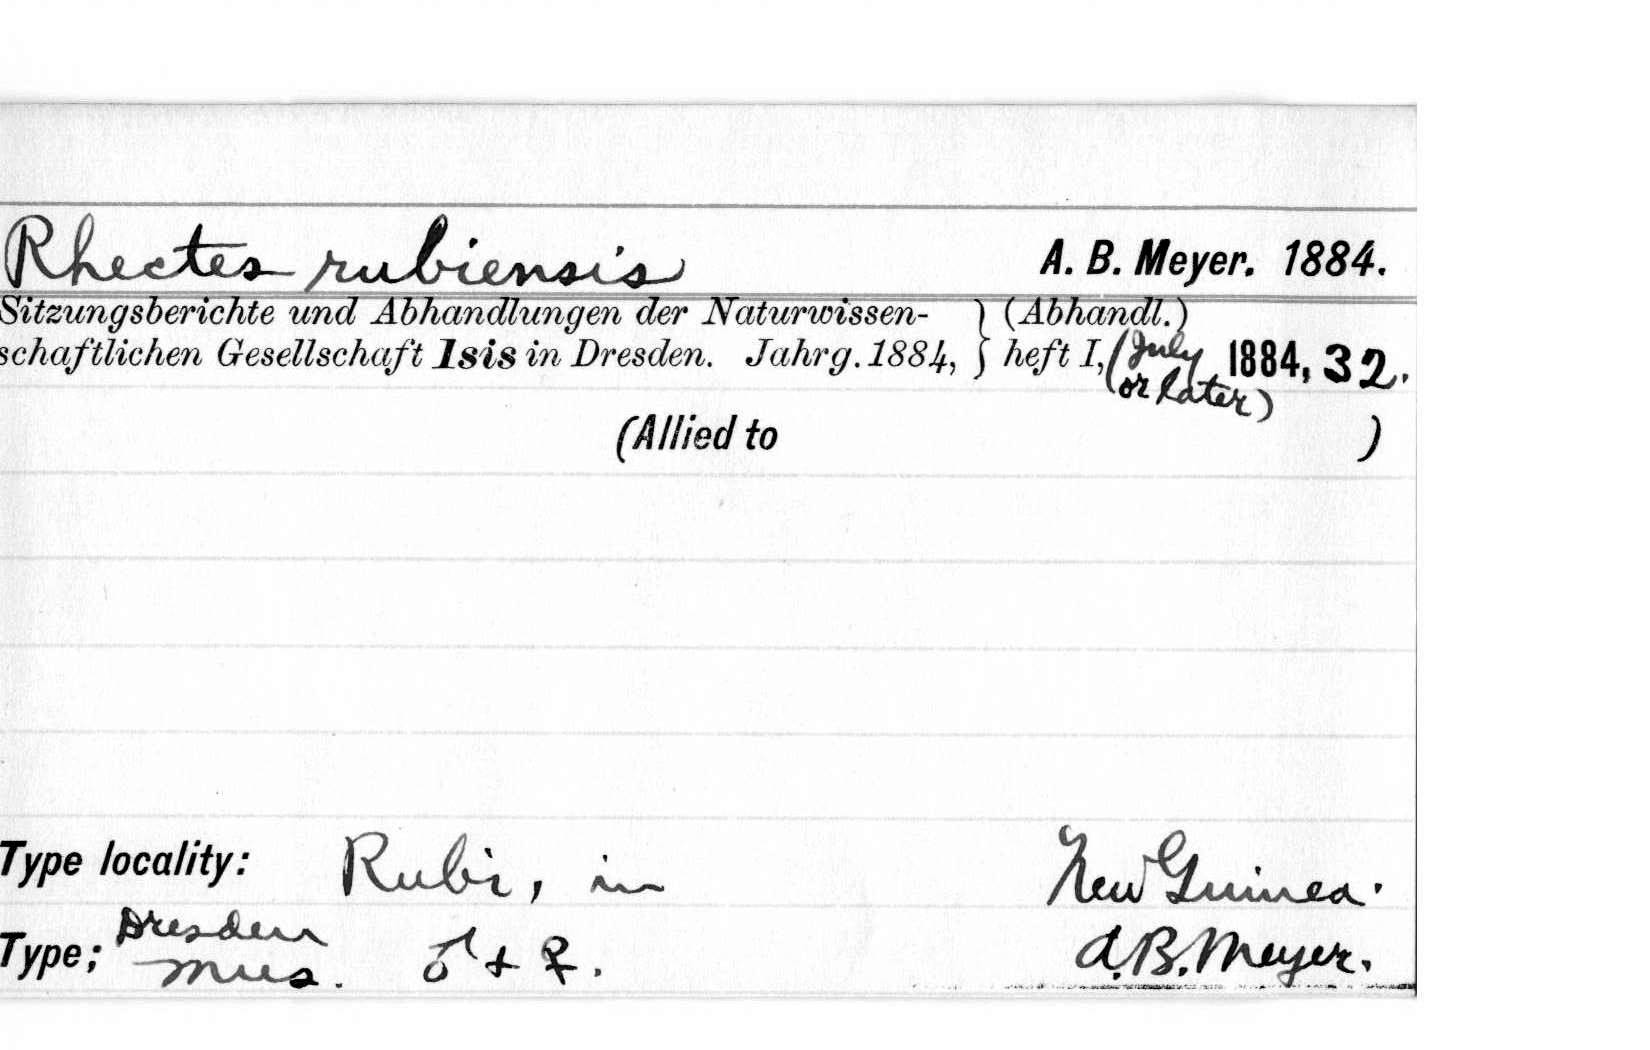 Rhectes rubiensis A. B. Meyer. 1884.
Sitzungsberichte und Abhandlungen der Naturwissen- } (Abhandl.)
schaftlichen Gesellschaft Isis in Dresden. Jahrg. 1884, } heft I, (July 1884, 32.
or later)
(Allied to )
Type locality: Rubi, in New Guinea.
Type; Dresden
Mus. ♂ + ♀. A.B. Meyer.